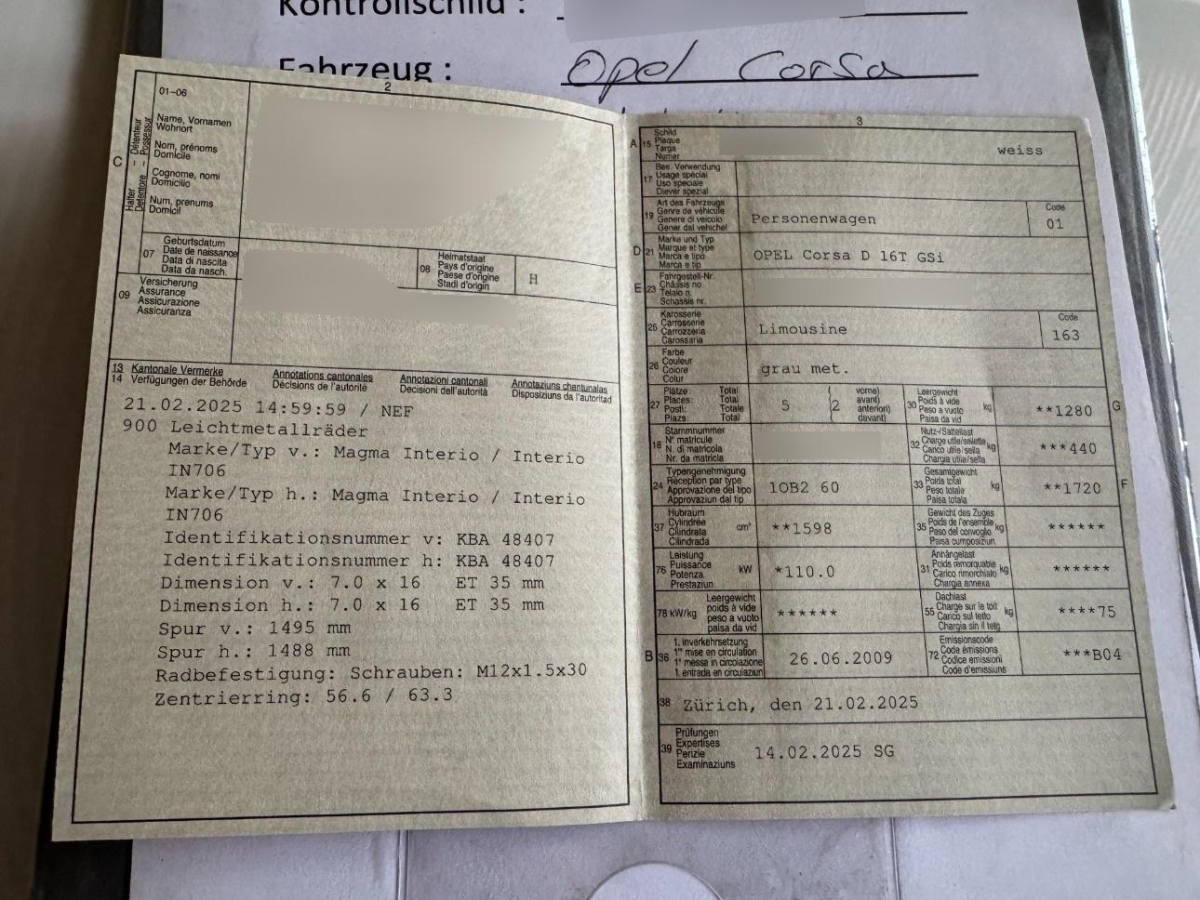 Kontrollschild :
Fahrzeug : Opel Corsa
2
01-06
Name, Vornamen
Wohnort
Nom, prénoms
Domicile
Cognome, nomi
Domicilio
Num, prenums
Domicil
C
Halter – Détenteur
Detentore – Possessur
07
Geburtsdatum
Date de naissance
Data di nascita
Data da nasch.
08
Heimatstaat
Pays d'origine
Paese d'origine
Stadi d'origin
H
09
Versicherung
Assurance
Assicurazione
Assicuranza
13 Kantonale Vermerke Annotations cantonales Annotazioni cantonali Annotaziuns chantunalas
14 Verfügungen der Behörde Décisions de l'autorité Decisioni dell'autorità Disposiziuns da l'autoritad
21.02.2025 14:59:59 / NEF
900 Leichtmetallräder
Marke/Typ v.: Magma Interio / Interio
IN706
Marke/Typ h.: Magma Interio / Interio
IN706
Identifikationsnummer v: KBA 48407
Identifikationsnummer h: KBA 48407
Dimension v.: 7.0 x 16 ET 35 mm
Dimension h.: 7.0 x 16 ET 35 mm
Spur v.: 1495 mm
Spur h.: 1488 mm
Radbefestigung: Schrauben: M12x1.5x30
Zentrierring: 56.6 / 63.3
3
A 15
Schild
Plaque
Targa
Numer
weiss
17
Bes. Verwendung
Usage spécial
Uso speciale
Diever spezial
19
Art des Fahrzeugs
Genre de véhicule
Genere di veicolo
Gener dal vehichel
Personenwagen
Code
01
D 21
Marke und Typ
Marque et type
Marca e tipo
Marca e tip
OPEL Corsa D 16T GSi
E 23
Fahrgestell-Nr.
Châssis no
Telaio n.
Schassis nr.
25
Karosserie
Carrosserie
Carrozzeria
Carossaria
Limousine
Code
163
26
Farbe
Couleur
Colore
Colur
grau met.
27
Plätze Total
Places: Total
Posti: Totale
Plazs Total
5 (2
vorne)
avant)
anteriori)
davant)
30
Leergewicht
Poids à vide
Peso a vuoto
Paisa da vid
kg
**1280
G
18
Stammnummer
N° matricule
N. di matricola
Nr. da matricla
32
Nutz-/Sattellast
Charge utile/sellette
Carico utile/sella
Chargia utila/sella
kg
***440
24
Typengenehmigung
Réception par type
Approvazione del tipo
Approvaziun dal tip
1OB2 60
33
Gesamtgewicht
Poids total
Peso totale
Paisa totala
kg
**1720
F
37
Hubraum
Cylindrée
Cilindrata
Cilindrada
cm³
**1598
35
Gewicht des Zuges
Poids de l'ensemble
Peso del convoglio
Paisa cumposiziun
kg
******
76
Leistung
Puissance
Potenza
Prestaziun
kW
*110.0
31
Anhängelast
Poids remorquable
Carico rimorchiato
Chargia annexa
kg
******
78 kW/kg
Leergewicht
poids à vide
peso a vuoto
paisa da vid
******
55
Dachlast
Charge sur le toit
Carico sul tetto
Chargia sin il tetg
kg
****75
B 36
1. Inverkehrsetzung
1re mise en circulation
1a messa in circolazione
1. entrada en circulaziun
26.06.2009
72
Emissionscode
Code émissions
Codice emissioni
Code d'emissiuns
***B04
38 Zürich, den 21.02.2025
39
Prüfungen
Expertises
Perizie
Examinaziuns
14.02.2025 SG